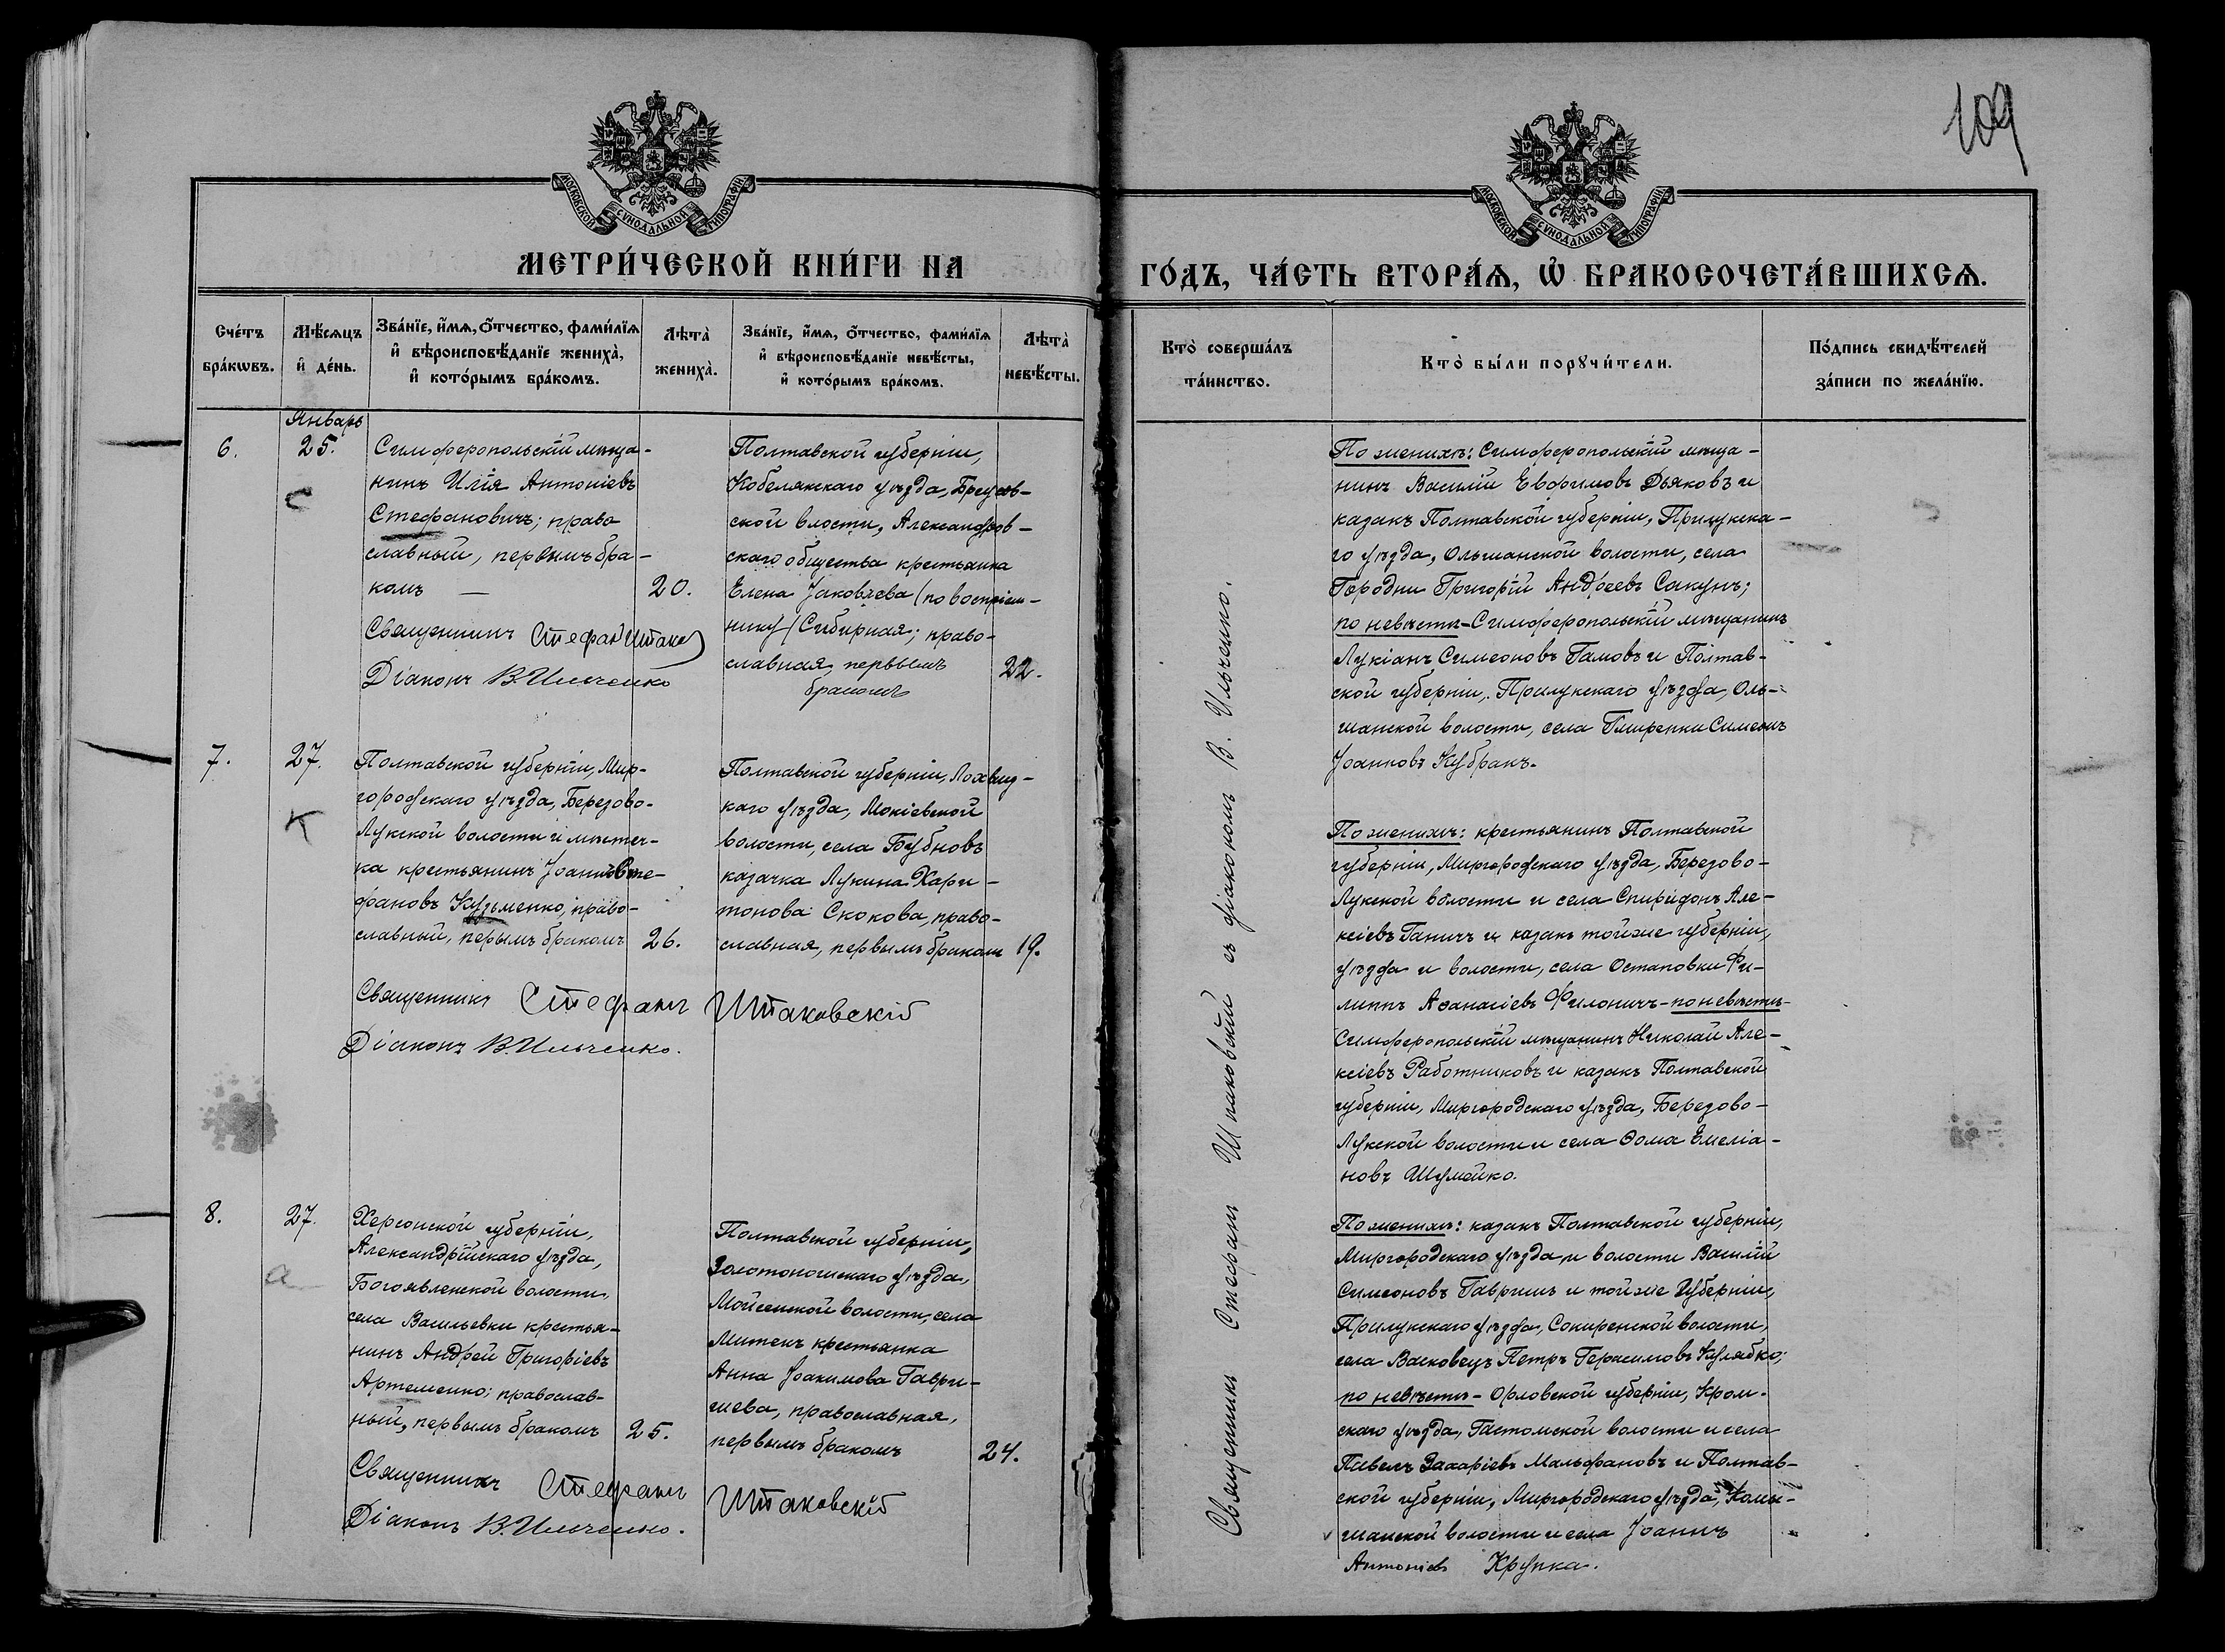 109
МОСКОВСКОЙ СѴНОДАЛЬНОЙ ТИПОГРАФІИ
МОСКОВСКОЙ СѴНОДАЛЬНОЙ ТИПОГРАФІИ
МЕТРИ́ЧЕСКОЙ КНИ́ГИ НА
ГО́ДЪ, ЧА́СТЬ ВТОРА́Ѧ, Ѡ҆ БРАКОСОЧЕТА́ВШИХСѦ.
Сче́тъ
бра́кѡвъ.
Мѣ́сѧцъ
и҆ де́нь.
Зва́нїе, и҆́мѧ, ѻ҆́тчество, фами́лїѧ
и҆ вѣроисповѣ́данїе жениха̀,
и҆ кото́рымъ бра́комъ.
Лѣта̀
жениха̀.
Зва́нїе, и҆́мѧ, ѻ҆́тчество, фами́лїѧ
и҆ вѣроисповѣ́данїе невѣ́сты,
и҆ кото́рымъ бра́комъ.
Лѣта̀
невѣ́сты.
Кто̀ соверша́лъ
та́инство.
Кто̀ бы́ли порꙋчи́тели.
По́дпись свидѣ́телей
за́писи по жела́нїю.
Январь
6.
25.
С
Симферопольскій мѣща-
нинъ Илія Антоніевъ
Стефановичъ; право
славный, первымъ бра-
комъ —
20.
Священникъ Стефан Шпаков
Діаконъ В. Ильченко
Полтавской губерніи,
Кобелякскаго уѣзда, Бреусов-
ской влости, Александров-
скаго общества крестьянка
Елена Іаковлева (по воспріем-
нику) Сибирная; право-
славная, первымъ
бракомъ
22.
По женихѣ: Симферопольскій мѣща-
нинъ Василій Евфимовъ Дьяковъ и
казакъ Полтавской губерніи, Прилукска-
го уѣзда, Ольшанской волости, села
Городни Григорій Андреевъ Сакунъ;
по невѣстѣ - Симферопольскій мѣщанинъ
Лукіанъ Симеоновъ Гамовъ и Полтав-
ской губерніи, Прилукскаго уѣзда, Оль-
шанской волости, села Гмирянки Симеонъ
Іоанновъ Кубракъ.
7.
27.
К
Полтавской губерніи, Мир-
городскаго уѣзда, Березово-
Лукской волости и мѣстеч-
ка крестьянинъ Іоаннъ Сте-
фановъ Кузьменко, право-
славный, перымъ бракомъ
26.
Священникъ Стефанъ Шпаковскій
Діаконъ В. Ильченко.
Полтавской губерніи, Лохвиц-
каго уѣзда, Мокіевской
волости, села Бубновъ
казачка Лукина Хари-
тонова Скокова, право-
славная, первымъ бракомъ
19.
По женихѣ: крестьянинъ Полтавской
губерніи, Миргородскаго уѣзда, Березово-
Лукской волости и села Спиридонъ Але-
ксіевъ Ганичъ и казакъ тойже губерніи,
уѣзда и волости, села Остаповки Фи-
липпъ Аѳанасіевъ Филоничъ - по невѣстѣ -
Симферопольскій мѣщанинъ Николай Але-
ксіевъ Работниковъ и казакъ Полтавской
губерніи, Миргородскаго уѣзда, Березово-
Лукской волости и села Ѳома Емеліа-
новъ Шумейко.
8.
27.
а
Херсонской губерніи,
Александрійскаго уѣзда,
Богоявленской волости,
села Васильевки крестья-
нинъ Андрей Григоріевъ
Артеменко; православ-
ный, первымъ бракомъ
25.
Священникъ Стефанъ Шпаковскій
Діаконъ В. Ильченко.
Полтавской губерніи,
Золотоношскаго уѣзда,
Мойсенской волости, села
Митекъ крестьянка
Анна Іоакимова Гаври-
шева, православная,
первымъ бракомъ
24.
По женихѣ: казакъ Полтавской губерніи,
Миргородскаго уѣзда и волости Василій
Симеоновъ Гавришъ и тойже губерніи,
Прилукскаго уѣзда, Сокиренской волости,
села Васковецъ Петръ Герасимовъ Кулябко;
по невѣстѣ - Орловской губерніи, Кром-
скаго уѣзда, Гастомской волости и села
Павелъ Захаріевъ Мальфановъ и Полтав-
ской губерніи, Миргородскаго уѣзда, Комы-
шанской волости и села Іоаннъ
Антоніевъ Крупка.
Священникъ Стефанъ Шпаковскій съ діакономъ В. Ильченко.